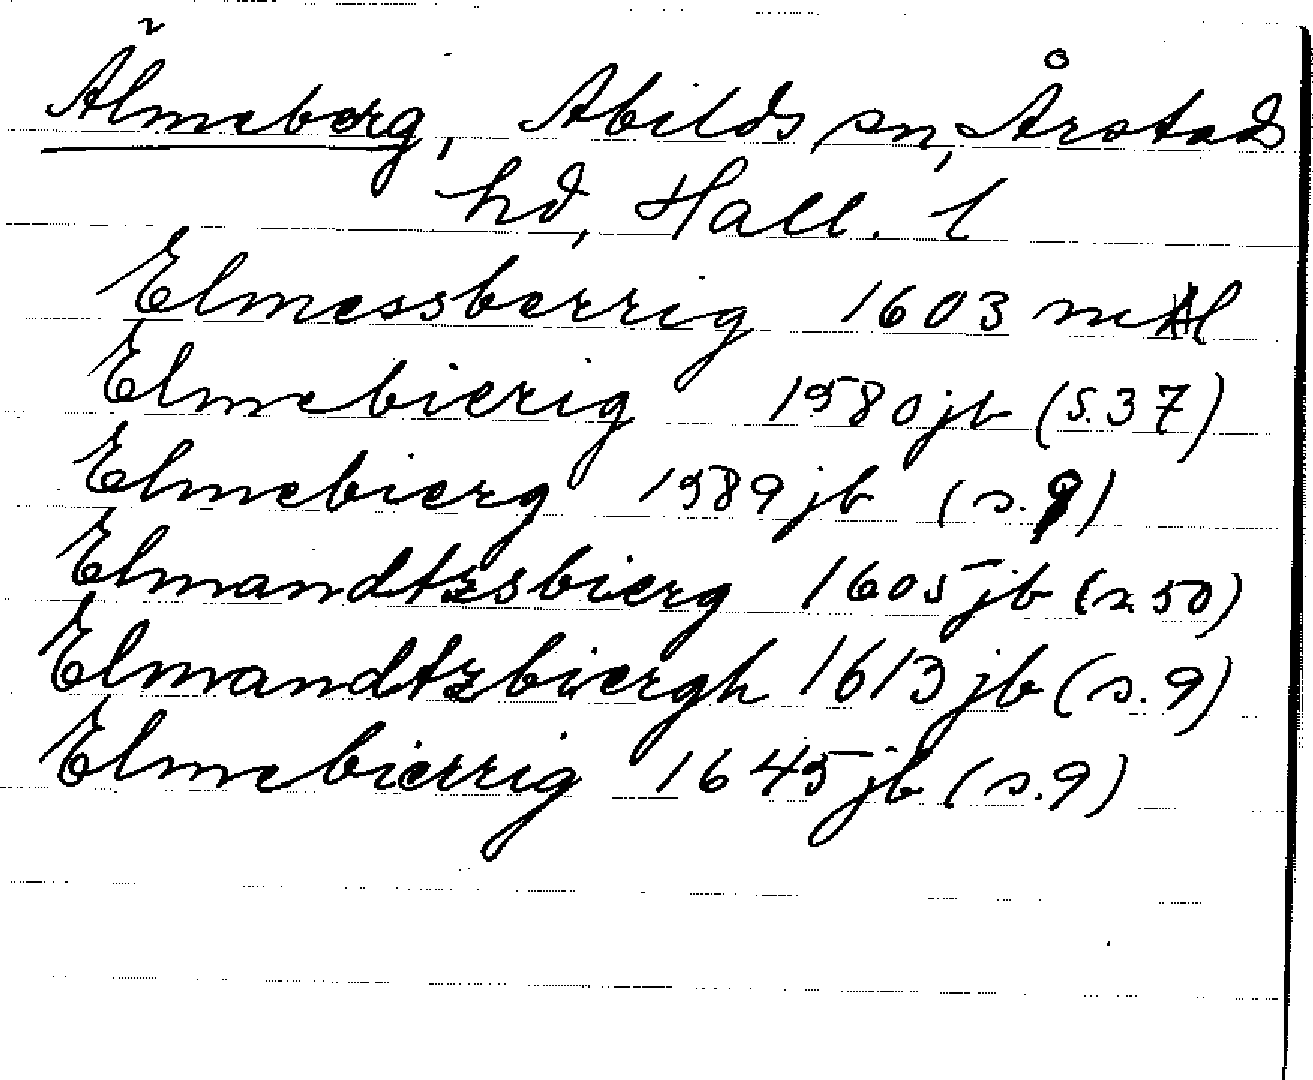 Älmeberg, Abilds sn, Årstads
hd, Hall. l
Elmessberrig 1603 mtl
Elmebierig 1580 jb (s. 37)
Elmebierg 1589 jb (s. 9)
Elmandtzsbierg 1605 jb (s. 50)
Elmandtzbiergh 1613 jb (s. 9)
Elmebierrig 1645 jb (s. 9)